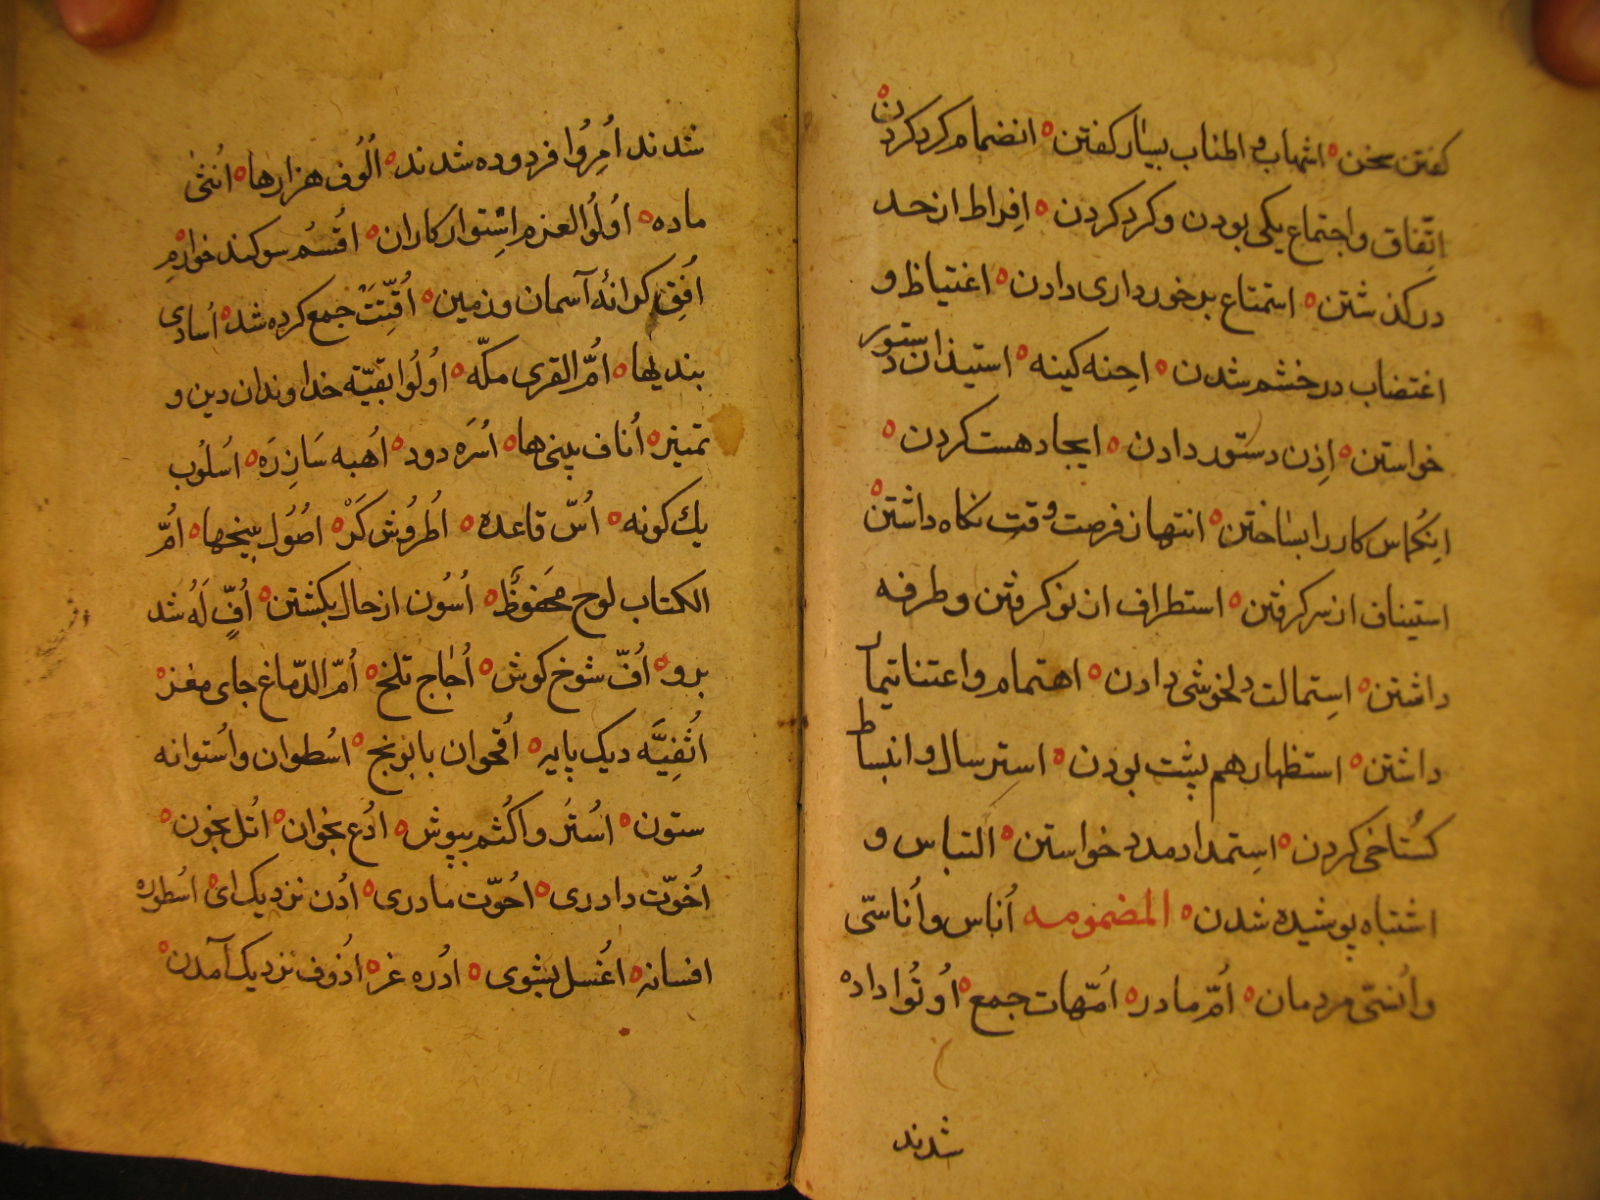 کفتن سخن ه اشهاب و المناب بسیار کفتن ه انضمام کرد کردن ه
اتّفاق و اجتماع یکی بودن و کرد کردن ه اِفراط از حد
در کذشتن ه استمتاع برخورداری دادن ه اغتیاظ و
اغتضاب در خشم شدن ه احِنه کینه ه استیذان دستور
خواستن ه اِذن دستور دادن ه ایجاد هست کردن ه
اِنکماس کار را بساختن ه انتهاز فرصت وقت نکاه داشتن ه
استیناف از سر کرفتن ه استطراف از نو کرفتن و طرفه
داشتن ه اسِتمالت دلخوشی دادن ه اهتمام و اعتنا تیمار
داشتن ه استظهار هم پشت بودن ه استرسال و انبساط
کسُتاخی کردن ه اسِتمداد مدد خواستن ه التباس و
اشتباه پوشیده شدن ه المضمومه اُناس و اُناسّی
و اُنسّی مردمان ه اُمّ مادر ه اُمّهات جمع ه اُوتُوا داده
شدند
شدند اُمِرُوا فرموده شدند ه اُلُوف هزارها ه اُنثیٰ
ماده ه اُولُوا العزم اِسْتوار کاران ه اقُسمُ سوکند خوارم ه
اُفق کرانهٔ آسمان و زمین ه اُقِّتَتْ جمع کرده شد ه اُسادی
بندیها ه اُمُّ القری مکّه ه اُولُوا بقیّة خداوندان دین و
تمییز ه اُناف بینی ها ه اُسرَه دود ه اُهبه سَازِ رَه ه اسُلوُب
یك کونه ه اسُّ قاعده ه اُطروُش کَرْ ه اصُوُل بیخها ه امُّ
الکتاب لوح مَحَفوظٌ ه اُسُون از حال بکشتن ه اُفٍّ لَهُ شد
برو ه اُفّ شوخ کوش ه اُجاج تلخ ه اُمّ الدّماغ جای مغز ه
اثُفِیَّه دیک پایه ه اقُحوان بابونج ه اسُطوان و اسُتوانه
ستون ه اسُتُر و اکُتُم بپوش ه ادُع بخوان ه اتُل بخون ه
اُخوّت دادری ه احُوّت مادری ه ادُن نزدیک ای ه اسُطوره
افسانه ه اغُسل بشوی ه ادُره غر ه ازُوف نزدیک آمدن ه